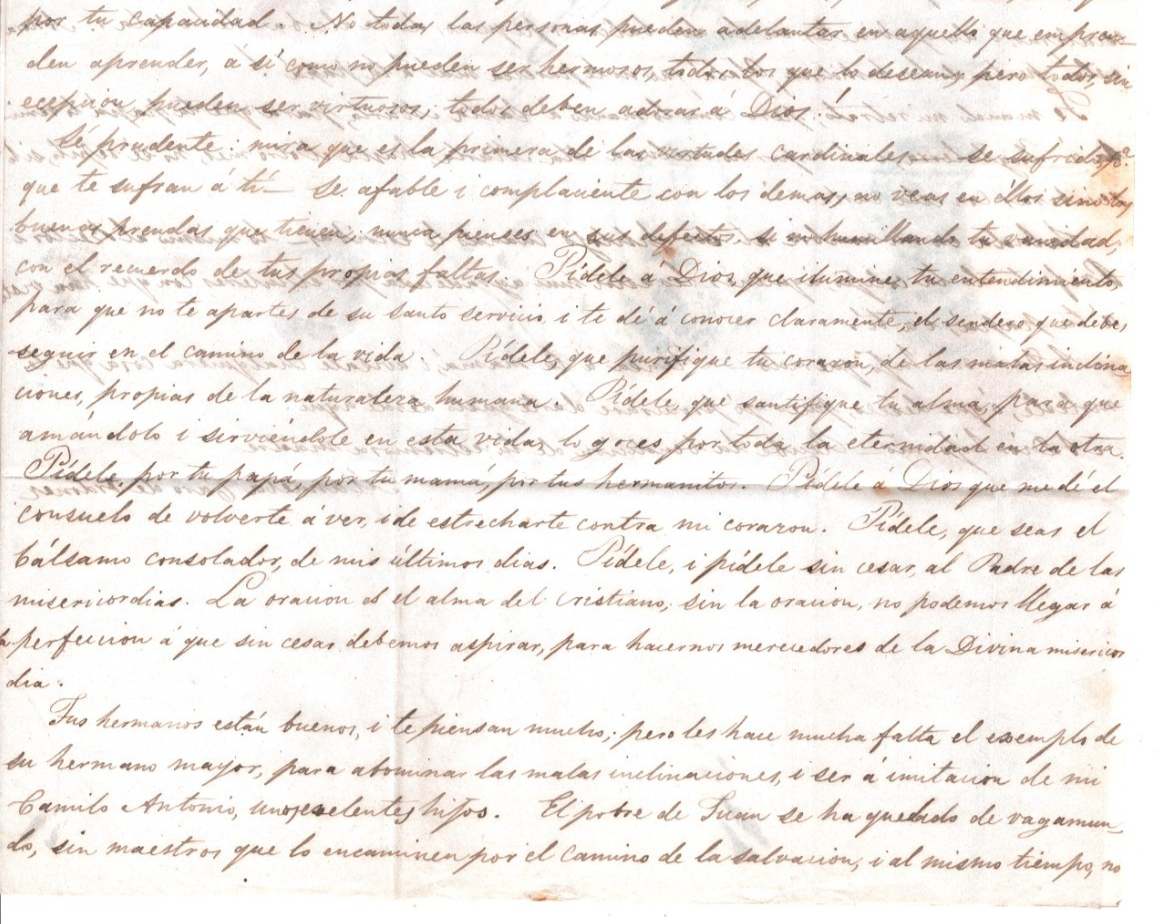 por tu capacidad. No todas las personas pueden adelantar en aquello, que empren-
den aprender, a sí como no pueden ser hermosos, todos los que lo desean; pero todos, sin
ecepcion, pueden ser virtuosos; todos deben adorar á Dios!
Sé prudente: mira que es la primera de las virtudes cardinales. se sufrido, pª.
que te sufran á tí— se afable i complaciente con los demas, no veas en éllos sino las
buenas prendas que tienen; nunca pienses en sus defectos, si en humillando tu vanidad,
con el recuerdo de tus propias faltas. Pídele á Dios, que ilumine tu entendimiento,
para que no te apartes de su santo servicio i te dé á conocer claramente, el sendero que debes
seguir en el camino de la vida. Pídele, que purifique tu corazon, de las malas inclina
ciones, propias de la naturaleza humana. Pídele, que santifique tu alma, para que
amándolo i sirviéndole en esta vida, lo goces por toda la eternidad en la otra.
Pídele, por tu papá, por tu mamá, por tus hermanitos. Pídele á Dios que me dé el
consuelo de volverte á ver, i de estrecharte contra mi corazon. Pídele, que seas el
bálsamo consolador, de mis últimos dias. Pídele, i pídele sin cesar, al Padre de las
misericordias. La oracion es el alma del cristiano; sin la oracion, no podemos llegar á
la perfeccion á que sin cesar debemos aspirar, para hacernos merecedores de la Divina misericor
dia.
Tus hermanos están buenos, i te piensan mucho; pero les hace mucha falta el exemplo de
su hermano mayor, para abominar las malas inclinaciones, i ser á imitacion de mi
Camilo Antonio, unos excelentes hijos. El pobre de Juan se ha quedado de vagamun-
do, sin maestros que lo encaminen por el camino de la salvacion, i al mismo tiempo, no